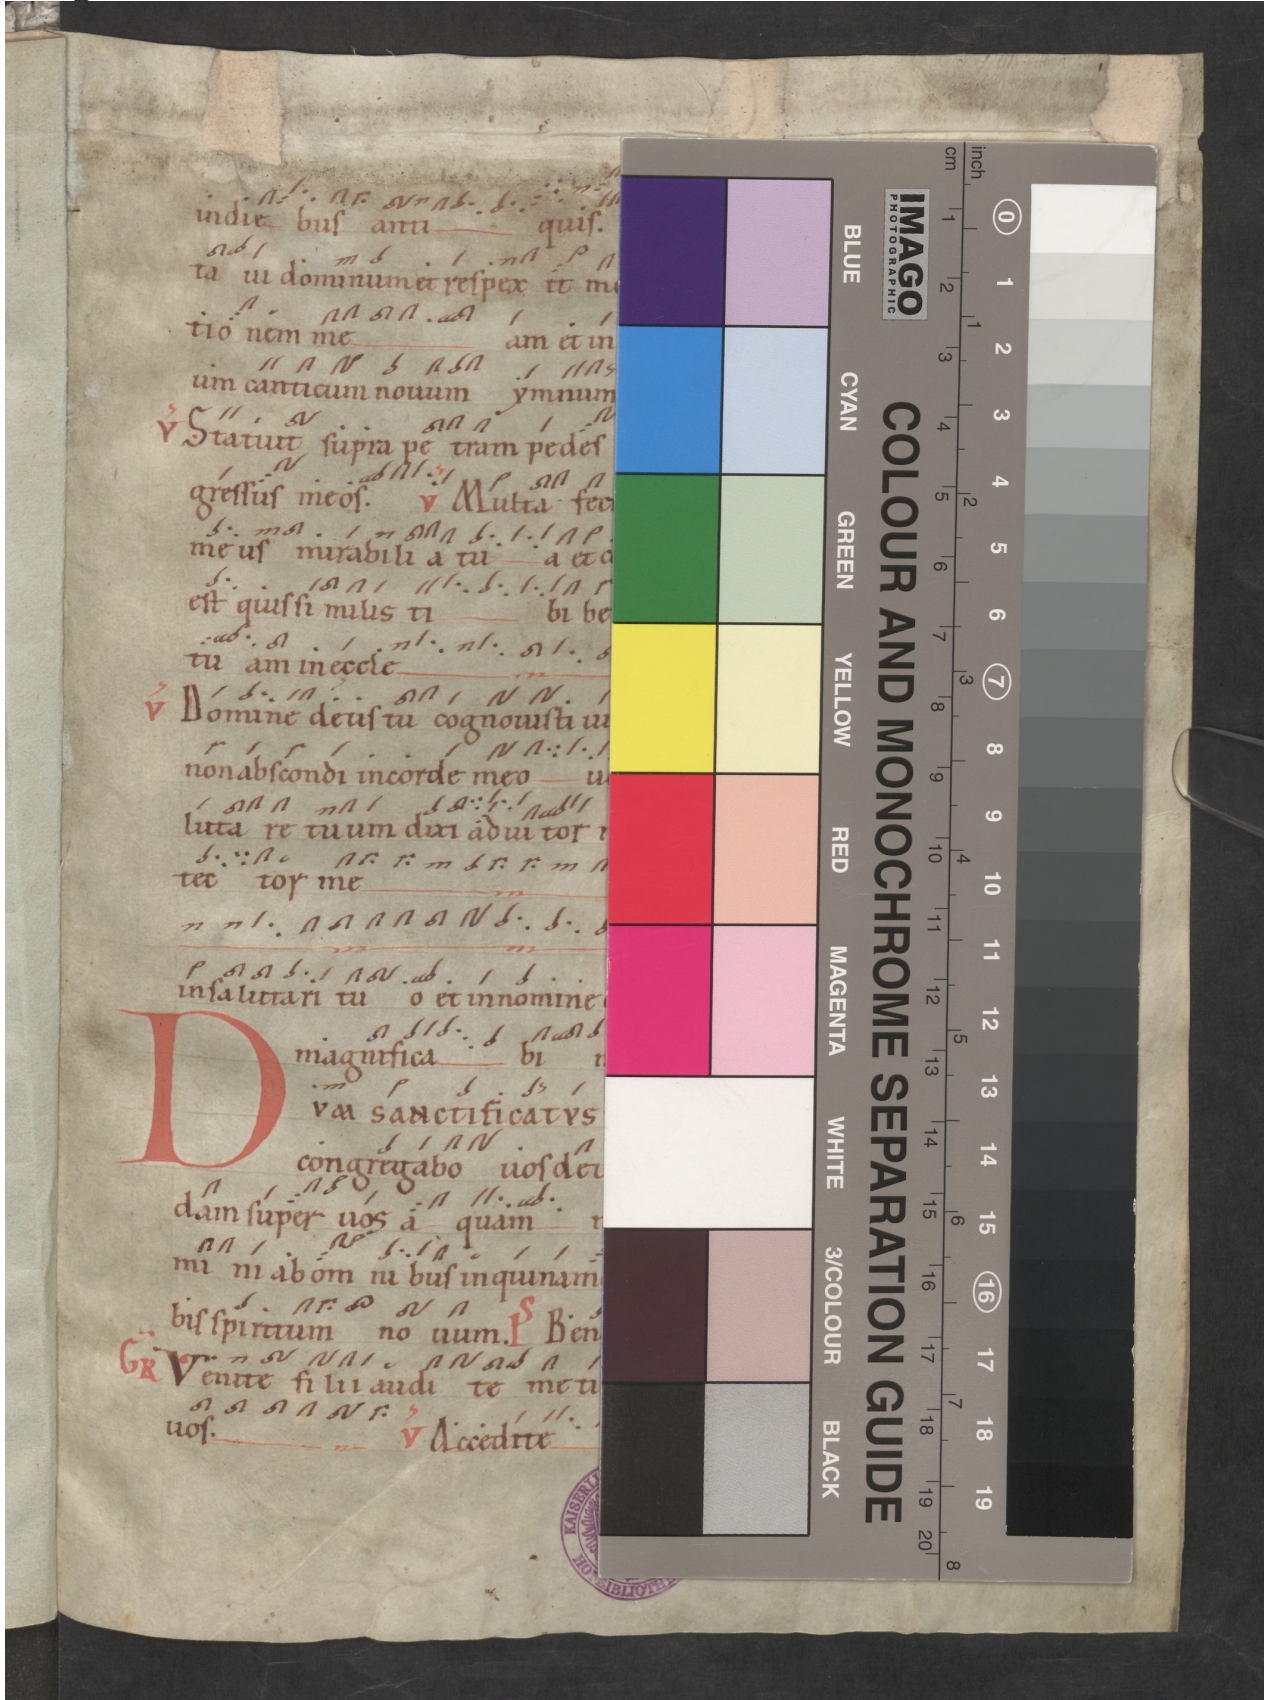 indie bus anti quis.
ta ui dominum et respex it me
tio nem me am et in
um canticum nouum ymnum
v Statuit supra pe tram pedes
gressus meos. v Multa feci
me us mirabili a tu a et c
est quis si milis ti bi be
tu am in eccle
v Domine deus tu cognouisti iu
non abscondi in corde meo u
luta re tuum dixi adiu tor
tec tor me
in saluttari tu o et in nomine
magnifica bi n
D VM SANCTIFICATVS
congregabo uos de
dam super uos a quam
mi ni ab om ni bus inquinam
bis spiritum no uum. PS Ben
GR Venite fi lii audi te me ti
uos. v Accedite
KAISERLI
HOFBIBLIOTH
IMAGO
PHOTOGRAPHIC
COLOUR AND MONOCHROME SEPARATION GUIDE
BLUE
CYAN
GREEN
YELLOW
RED
MAGENTA
WHITE
3/COLOUR
BLACK
cm 1 2 3 4 5 6 7 8 9 10 11 12 13 14 15 16 17 18 19 20
inch 1 2 3 4 5 6 7 8
0 1 2 3 4 5 6 7 8 9 10 11 12 13 14 15 16 17 18 19